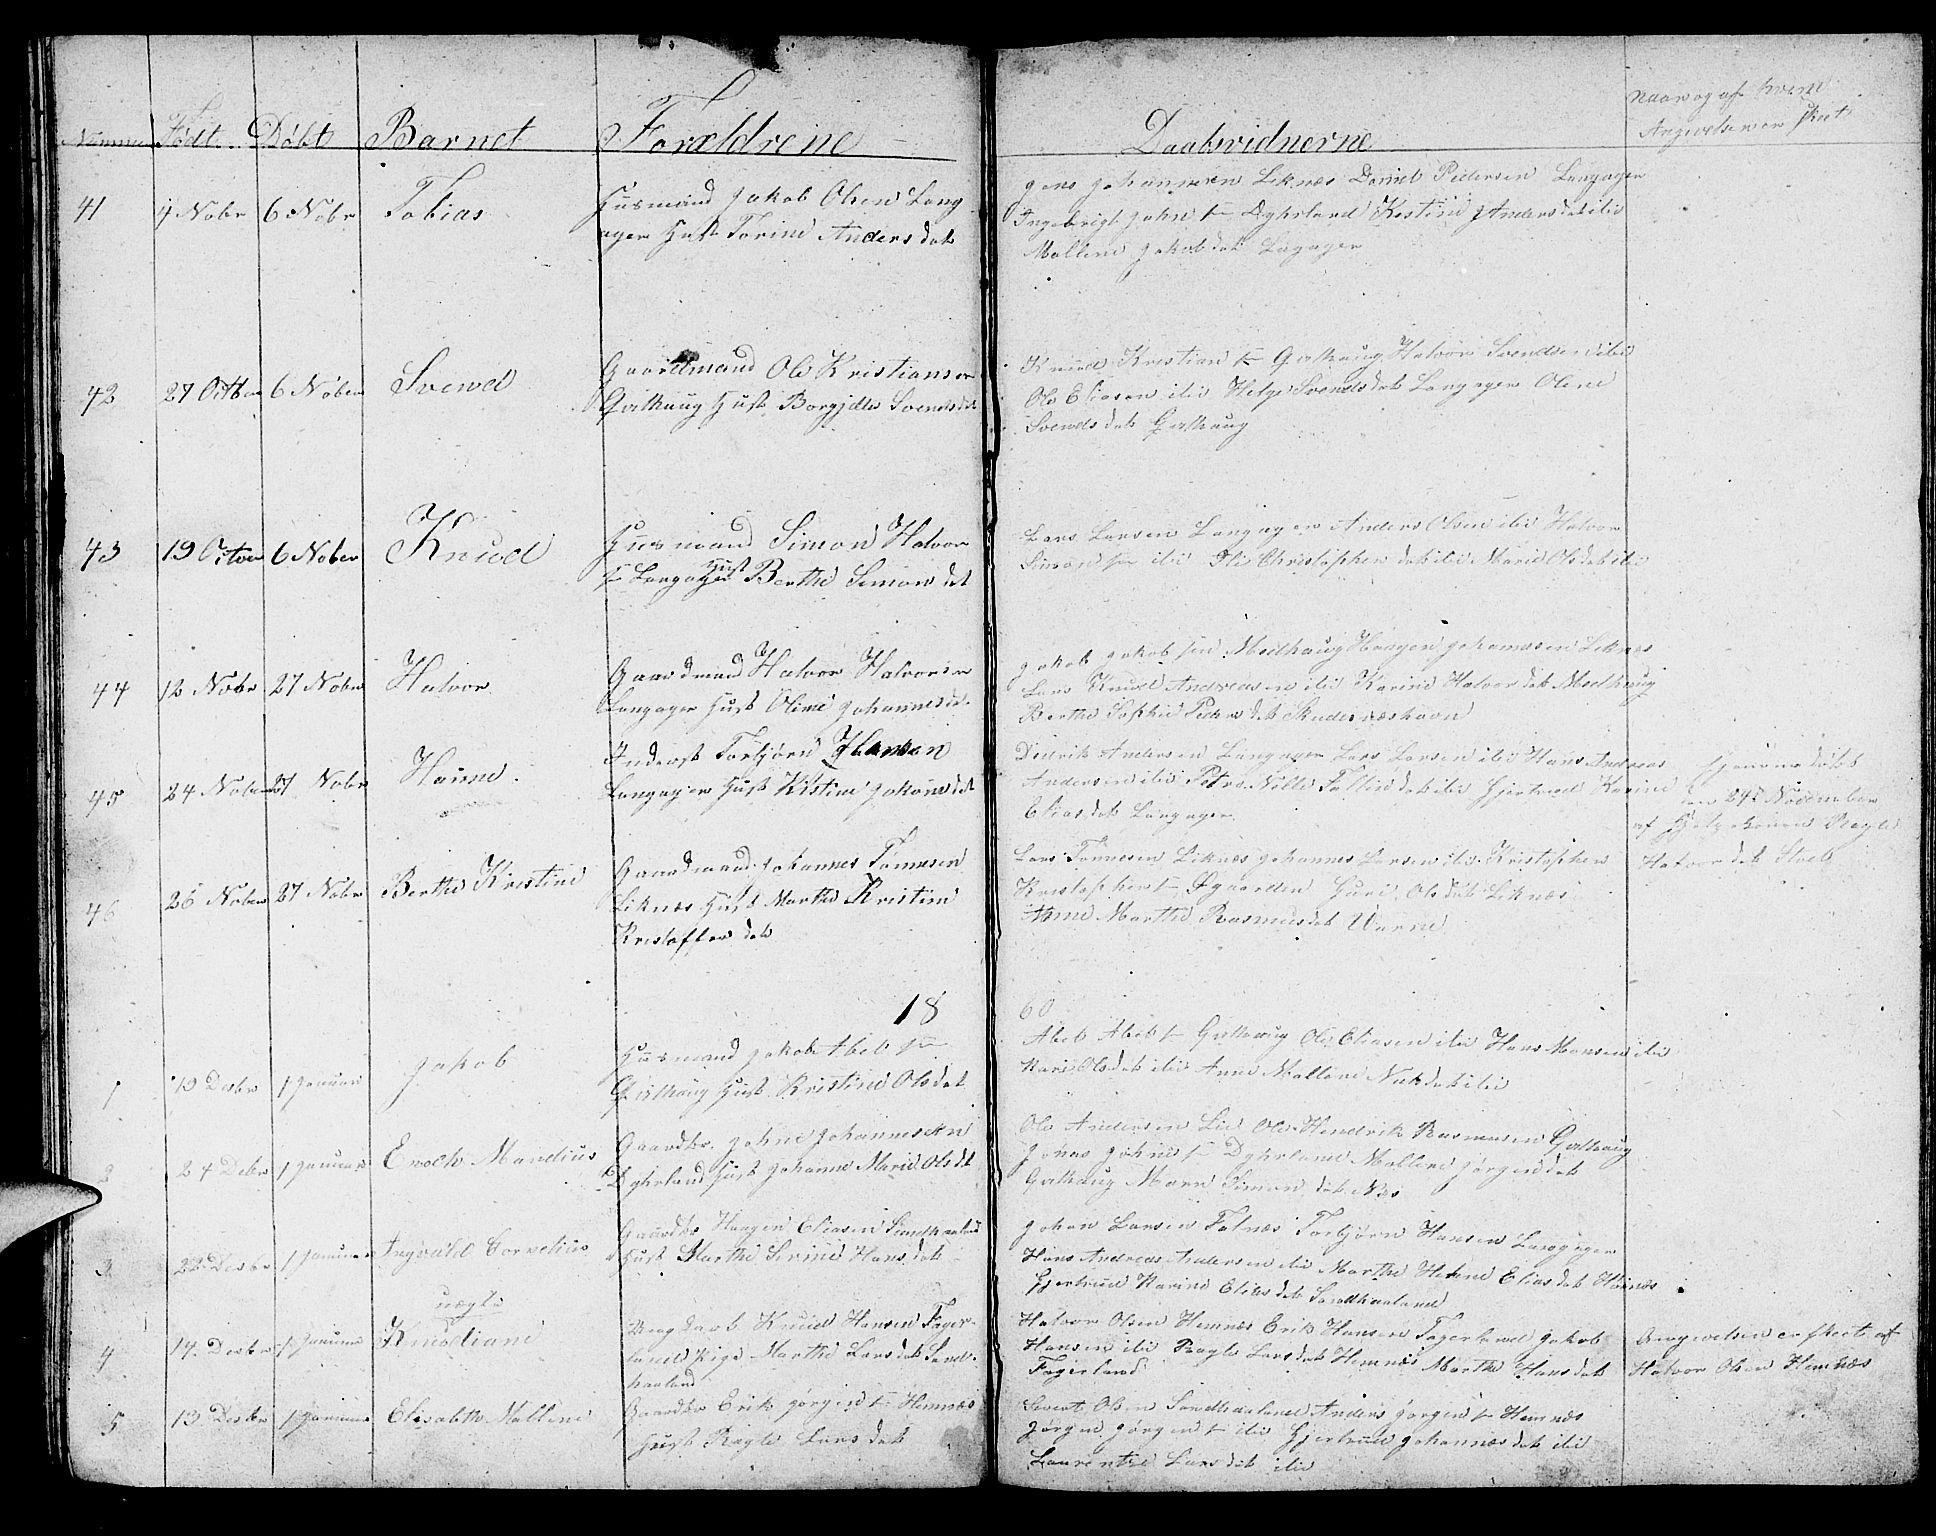 Nummer Født Døbt Barnet Forældrene Daabsvidnerne naar og af hvem
Angivelsen er skeet
41 4 Nobr 6 Nobr Tobias Husmand Jakob Olsen Lang
ager Hust Torine Anders dat
Jens Johannesen Liknæs Daniel Pedersen Langager
Ingebrigt John s. Dyhrland Kestine Andersdat ibi
Mallene Jakobdat Lagager
42 27 Octbr 6 Nober Svend Gaardmand Ole Kristiansen
Guthaug Hust Borgjdle Svends dat
Knud Kristian s. Guthaug Halvor Svendsen ibi
Ole Eliasen ibi Helge Svendsdat Langager Olene
Svends dat Guthaug
43 19 Octor 6 Nober Knud Husmand Simon Halvor
s. Langager Hust Berthe Simon dat
Lars Larsen Langager Anders Olsen ibi Halvor
Simon s. ibi Christophen dat ibi Marie Olsdat ibi
44 12 Nobr 27 Nobr Halvor Gaardmand Halvor Halvorsen
Langager Hust Oline Johannesd.
Jakob Jakobsen Medhaug Haagen Johannesen Liknæs
Lars Knud Andreasen ibi Karine Halvor dat Medhaug
Berthe Sophie Peders dat Skudesnæshavn
45 24 Nober 27 Nobr Hanne. Inderst Torbjørn Hansen
Langager Hust Kistine Jakobsdat
Didrik Andersen Langager Lars Larsen ibi Hans Andreas
Andersen ibi Petra Nille Tollin dat ibi Gjertrud Karine
Elias dat Langager
Hjemmedøbt
den 24de November
af Hjelpekonen Ragle
Halvor dat Stob
46 26 Nober 27 Nobr Berthe Kristine Gaardmand Johannes Tønnesen
Liknæs Hust Marthe Kristine
Kristoffer dat
Lars Tønnesen Liknæs Johannes Larsen ibi Kristopher
Kristopher s. Øgaarden Guri Olsdat Liknæs
Anne Marthe Rasmusdat Utvne
18 60
1 19 Desbr 1 Januar Jakob Husmand Jakob Abel s.
Guthaug Hust Kristine Olsdat
Abel Abel s. Guthaug Ole Eliasen ibi Hans Monsen ibi
Kari Olsdat ibi Anne Mallene dat ibi
2 24 Debr 1 Januar Enolk Mandius Gaardbr. Johne Johannesen
Dyhrland Hust Johanne Marie Olsdt
Ole Andersen Lie Ole Hendrik Rasmusen Guthaug
Jonas Johne s. Dyhrland Mallene Jørgen dat
Guthaug Maren Simon dat Næs
3 22 Desbr 1 Januar Ingvald Cornelius Gaardbr Haagen Eliasen Sandhaaland
Hust Marthe Serine Hans dat
Johan Larsen Falnæs Torbjørn Hansen Langager
Hans Andreas Andersen ibi Marthe Helene Elias dat Høinæs
Gjertrud Karine Elias dat Sandhaaland
uægte
4 14 Desbr 1 Januar Knudiane Ungkarl Knud Hansen Fager-
land Pige Marthe Lars dat Sand-
haaland
Halvor Olsen Hemnæs Erik Hansen Fagerland Jakob
Hansen ibi Ragle Larsdat Hemnæs Marthe Hans dat
Fagerland
Angivelsen er skeet af
Halvor Olsen Hemnæs
5 13 Desbr 1 Januar Elisabeth Mallene Gaardbr Erik Jørgen s. Hemnæs
Hust Ragle Lars dat
Sivert Olsen Sandhaaland Anders Jørgen s. Hemnæs
Jørgen Jørgen s. ibi Gjertrud Johannes dat ibi
Laurentse Lars dat ibi